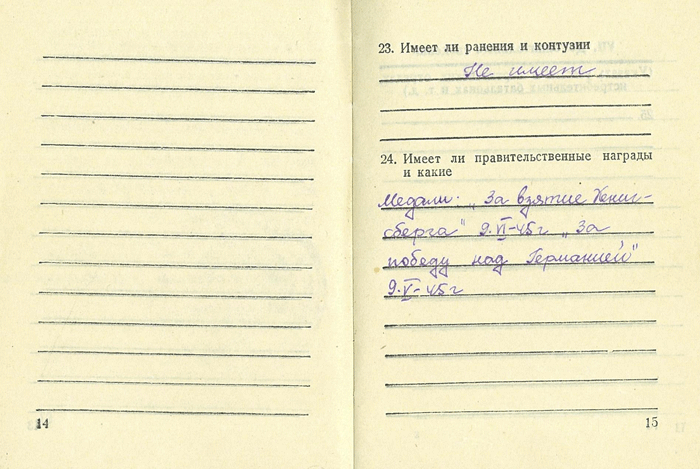 23. Имеет ли ранения и контузии
Не имеет
24. Имеет ли правительственные награды
и какие
Медали: „За взятие Кениг-
сберга" 9.VI-45г „За
победу над Германией"
9.V-45г
14
15